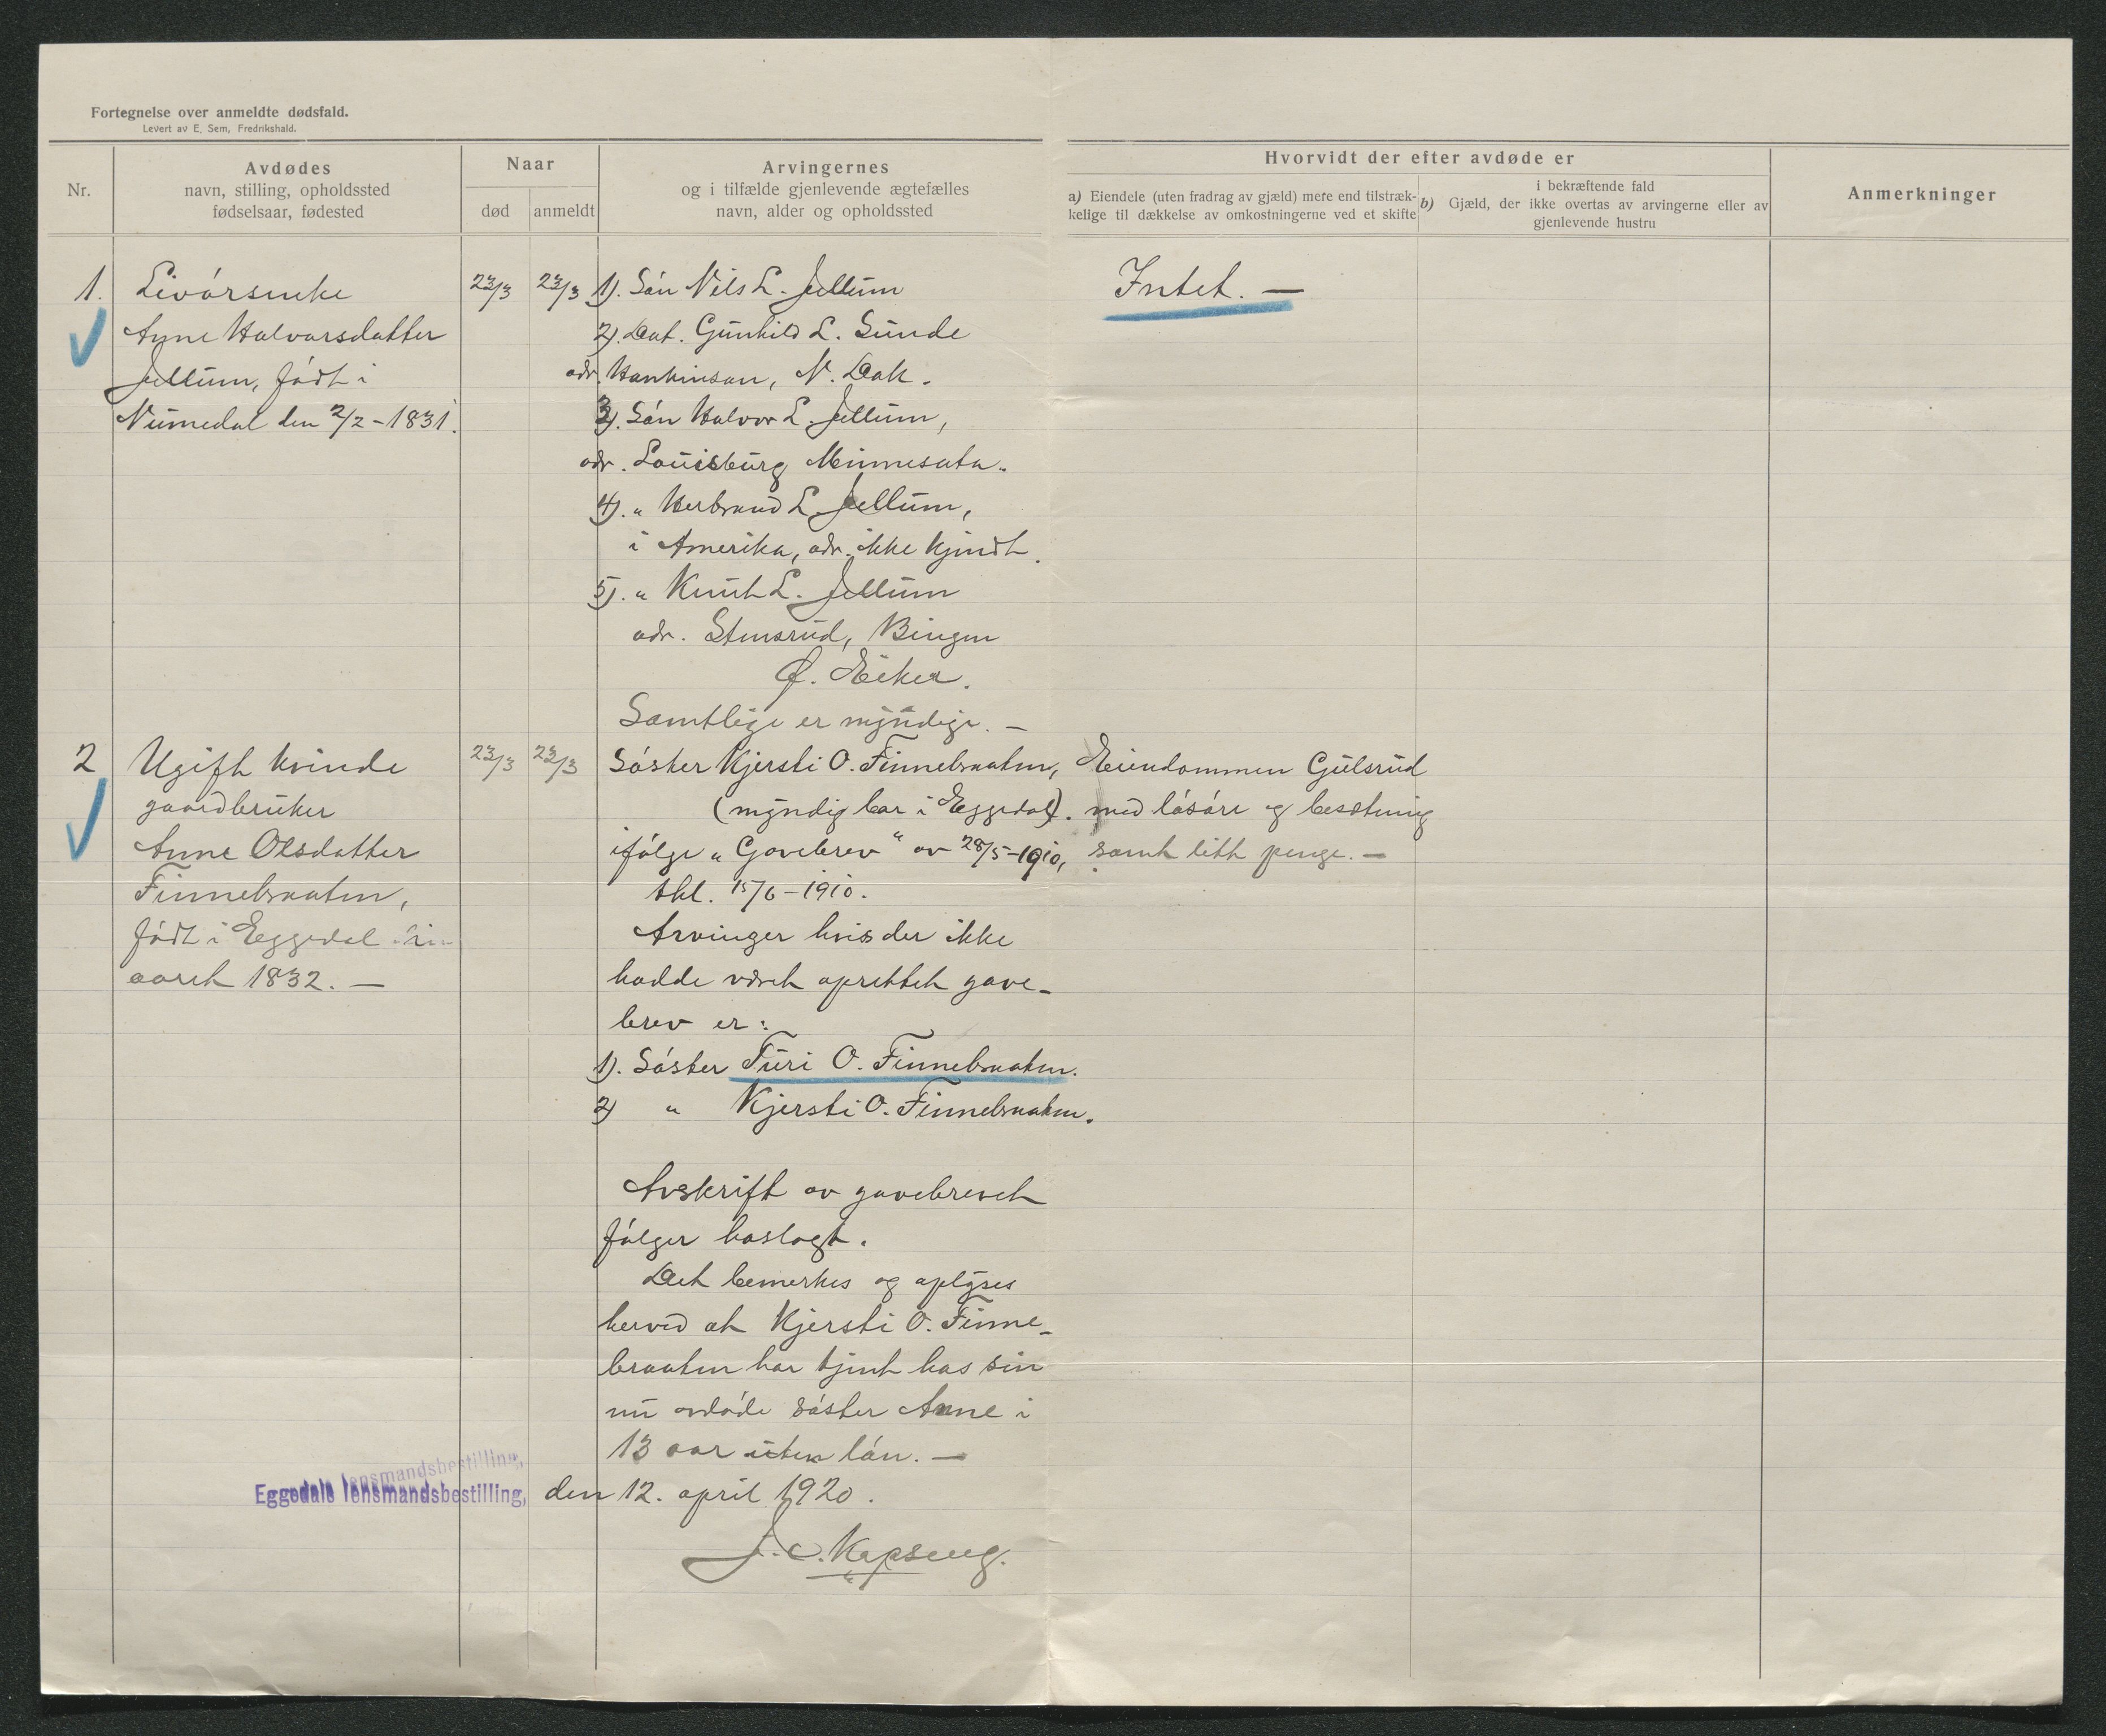 Fortegnelse over anmeldte dødsfald.
Levert av E. Sem, Fredrikshald.
Nr.
Avdødes
navn, stilling, opholdssted
fødselsaar, fødested
Naar
død
anmeldt
Arvingernes
og i tilfælde gjenlevende ægtefælles
navn, alder og opholdssted
Hvorvidt der efter avdøde er
a) Eiendele (uten fradrag av gjæld) mere end tilstræk-
kelige til dækkelse av omkostningerne ved et skifte
i bekræftende fald
b) Gjæld, der ikke overtas av arvingerne eller av
gjenlevende hustru
Anmerkninger
1.
Livörsenke
Anne Halvorsdatter
Jellum, född i
Numedal den 2/2 - 1831.
23/3
23/3
1). Sön Nils L. Jellum
2). Dat. Gunhild L. Sunde
adr. Hankinson, N. Dak.
3). Sön Halvor L. Jellum,
adr. Louisburg Minnesota.
4). " Herbrand L. Jellum,
i Amerika, adr. ikke kjendt.
5). " Knut L. Jellum
adr. Stensrud, Bingen
Ø. Eiker.
Samtlige er myndige. —
Intet. —
2
Ugift kvinde
gaardbruker
Anne Olsdatter
Finnebraaten,
födt i Eggedal i
aaret 1832. —
23/3
23/3
Söster Kjersti O. Finnebraaten,
(myndig bor i Eggedal).
ifölge „Gavebrev" av 28/5-1910,
tkl. 15/6 - 1910.
Arvinger hvis der ikke
hadde været oprettet gave-
brev er:
1). Söster Turi O. Finnebraaten.
2) " Kjersti O. Finnebraaten.
Avskrift av gavebrevet
fölger hoslagt.
Det bemerkes og oplyses
herved at Kjersti O. Finne-
braaten har tjent hos sin
nu avdöde söster Anne i
13 aar uten lön. —
Eiendommen Gulsrud
med lösöre og besetning
samt litt penge. —
Eggedals lensmandsbestilling,
Eggedals lensmandsbestilling, den 12. april 1920.